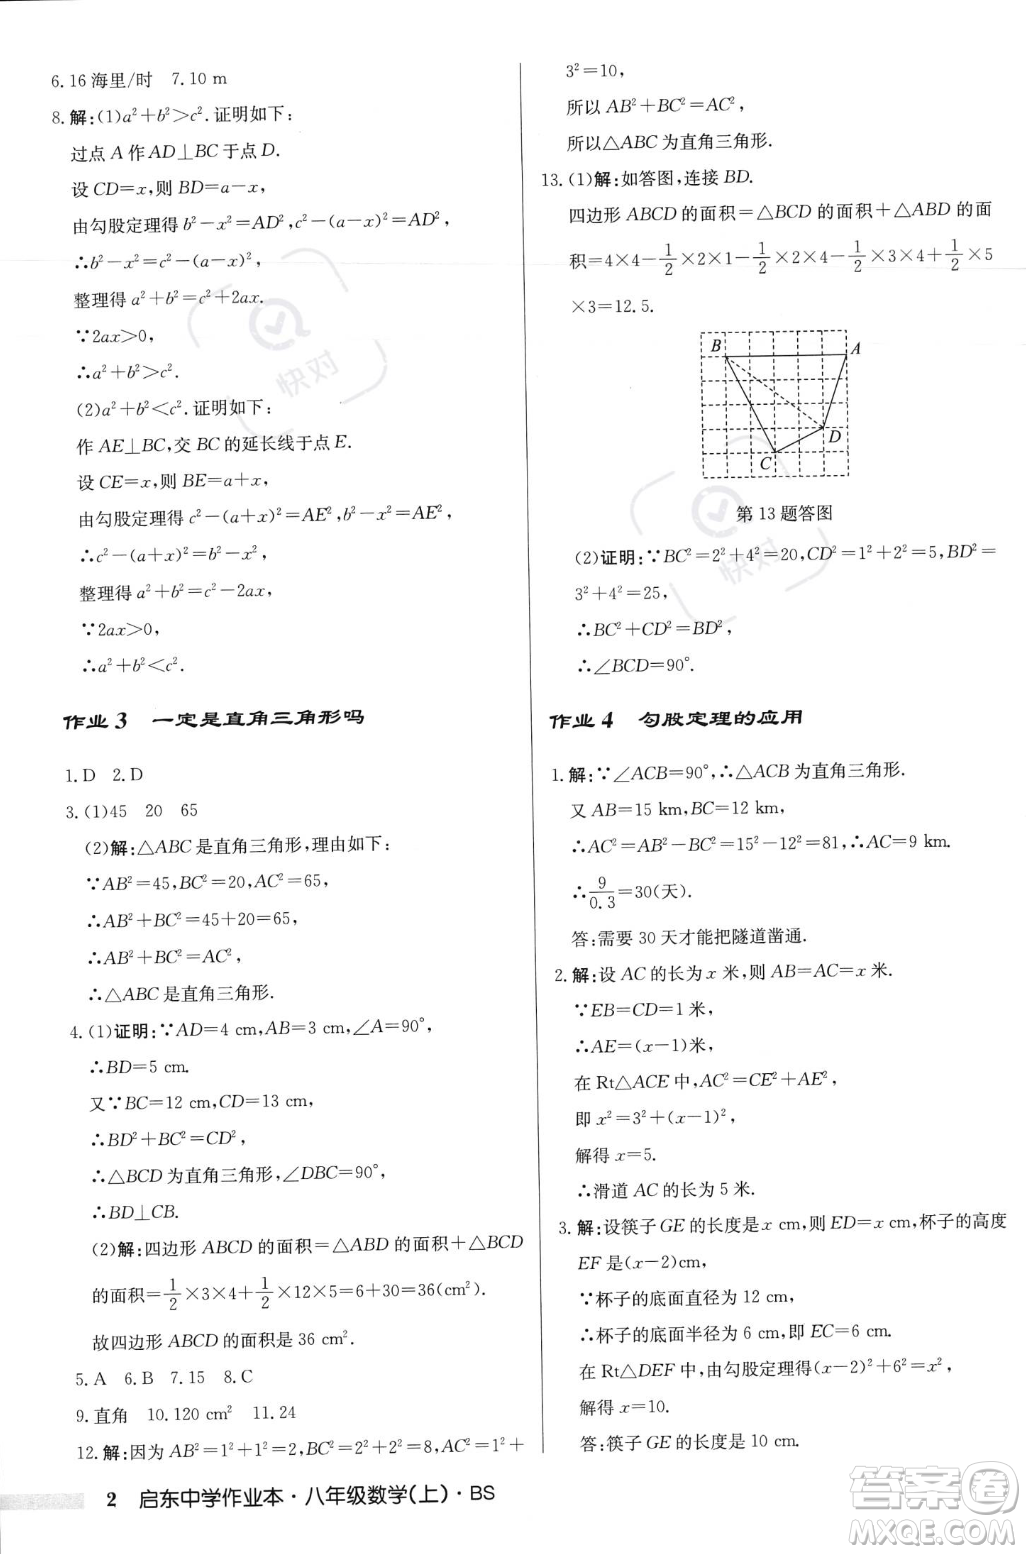 6.16 海里/时　7.10 m
8.解:(1)a²+b²>c².证明如下:
过点 A 作 AD⊥BC 于点 D.
设 CD=x,则 BD=a-x,
由勾股定理得 b²-x²=AD²,c²-(a-x)²=AD²,
∴b²-x²=c²-(a-x)²,
整理得 a²+b²=c²+2ax.
∵2ax>0,
∴a²+b²>c².
(2)a²+b²<c².证明如下:
作 AE⊥BC,交 BC 的延长线于点 E.
设 CE=x,则 BE=a+x,
由勾股定理得 c²-(a+x)²=AE²,b²-x²=AE²,
∴c²-(a+x)²=b²-x²,
整理得 a²+b²=c²-2ax,
∵2ax>0,
∴a²+b²<c².
作业 3　一定是直角三角形吗
1.D　2.D
3.(1)45　20　65
(2)解:△ABC 是直角三角形,理由如下:
∵AB²=45,BC²=20,AC²=65,
∴AB²+BC²=45+20=65,
∴AB²+BC²=AC²,
∴△ABC 是直角三角形.
4.(1)证明:∵AD=4 cm,AB=3 cm,∠A=90°,
∴BD=5 cm.
又∵BC=12 cm,CD=13 cm,
∴BD²+BC²=CD²,
∴△BCD 为直角三角形,∠DBC=90°,
∴BD⊥CB.
(2)解:四边形 ABCD 的面积=△ABD 的面积+△BCD
的面积=1/2×3×4+1/2×12×5=6+30=36(cm²).
故四边形 ABCD 的面积是 36 cm².
5.A　6.B　7.15　8.C
9.直角　10.120 cm²　11.24
12.解:因为 AB²=1²+1²=2,BC²=2²+2²=8,AC²=1²+
3²=10,
所以 AB²+BC²=AC²,
所以△ABC 为直角三角形.
13.(1)解:如答图,连接 BD.
四边形 ABCD 的面积=△BCD 的面积+△ABD 的面
积=4×4-1/2×2×1-1/2×2×4-1/2×3×4+1/2×5
×3=12.5.
B
A
D
C
第 13 题答图
(2)证明:∵BC²=2²+4²=20,CD²=1²+2²=5,BD²=
3²+4²=25,
∴BC²+CD²=BD²,
∴∠BCD=90°.
作业 4　勾股定理的应用
1.解:∵∠ACB=90°,∴△ACB 为直角三角形.
又 AB=15 km,BC=12 km,
∴AC²=AB²-BC²=15²-12²=81,∴AC=9 km.
∴9/0.3=30(天).
答:需要 30 天才能把隧道凿通.
2.解:设 AC 的长为 x 米,则 AB=AC=x 米.
∵EB=CD=1 米,
∴AE=(x-1)米,
在 Rt△ACE 中,AC²=CE²+AE²,
即 x²=3²+(x-1)²,
解得 x=5.
∴滑道 AC 的长为 5 米.
3.解:设筷子 GE 的长度是 x cm,则 ED=x cm,杯子的高度
EF 是(x-2)cm,
∵杯子的底面直径为 12 cm,
∴杯子的底面半径为 6 cm,即 EC=6 cm.
在 Rt△DEF 中,由勾股定理得(x-2)²+6²=x²,
解得 x=10.
答:筷子 GE 的长度是 10 cm.
2　启东中学作业本·八年级数学(上)·BS
快对
快对
答案圈
MXQE.COM